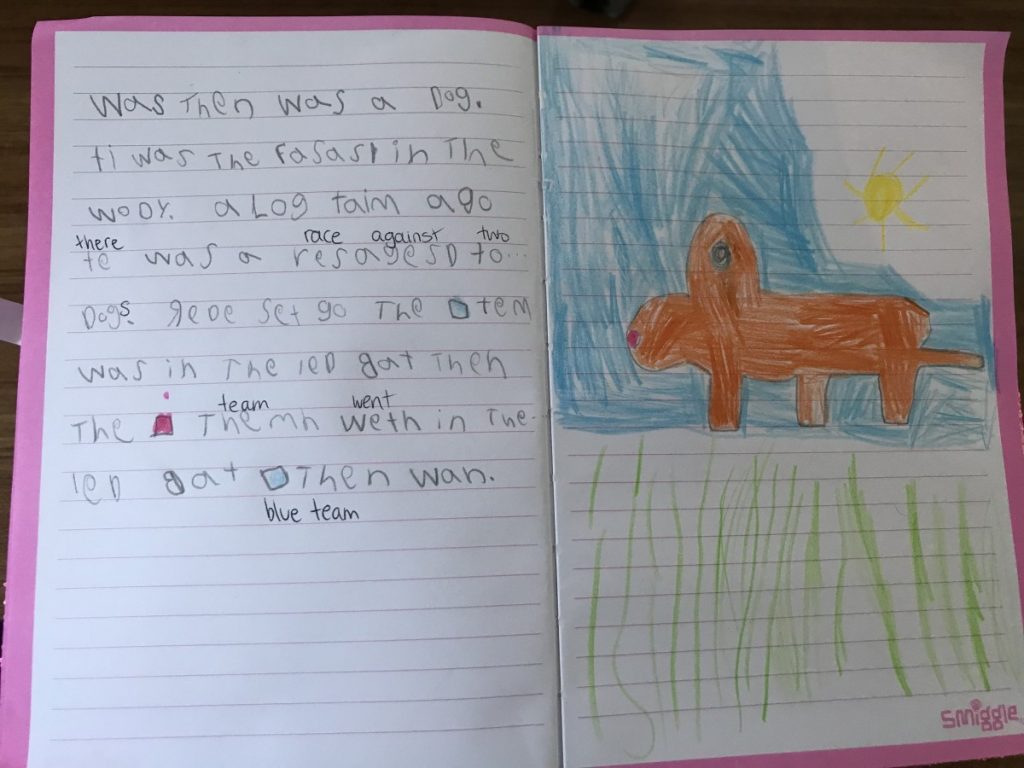 was Then was a Dog.
ti was The fasast in The
woDY. a Log taim ago
there race against two
te was a resagesD to...
Dogs. ReDe Set go The tem
was in The leD gat Then
team went
The Themh weth in The
leD gat Then wan.
blue team
smiggle